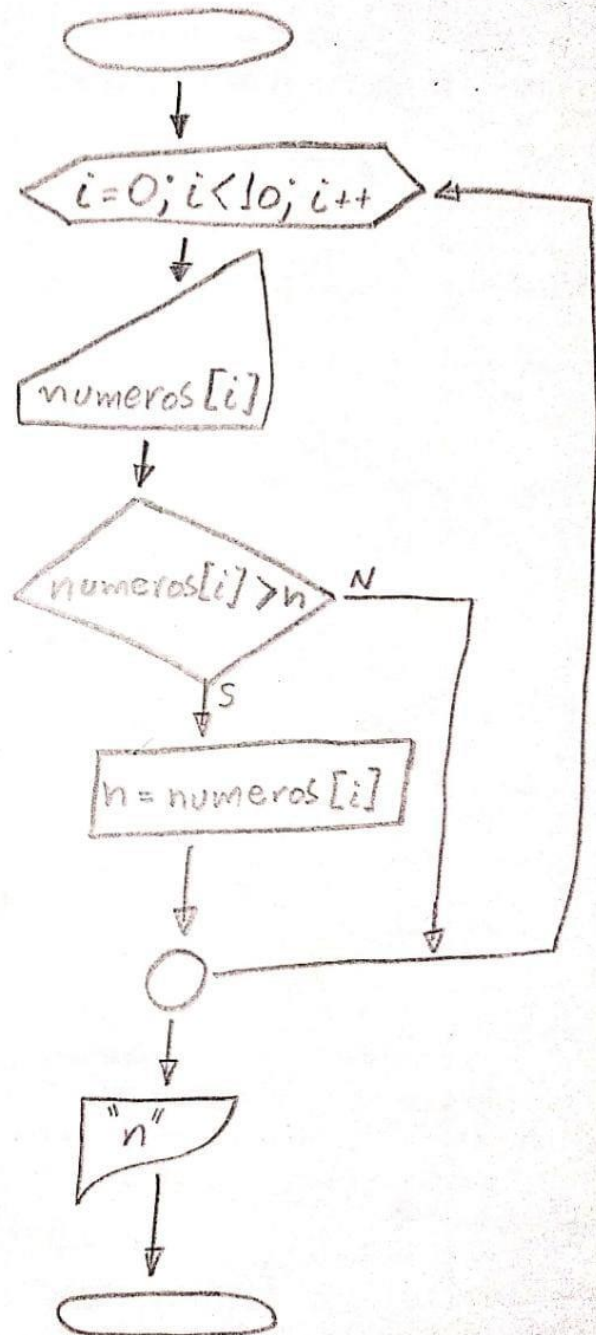 i=0; i<10; i++
numeros[i]
numeros[i]>n
N
S
n=numeros[i]
"n"